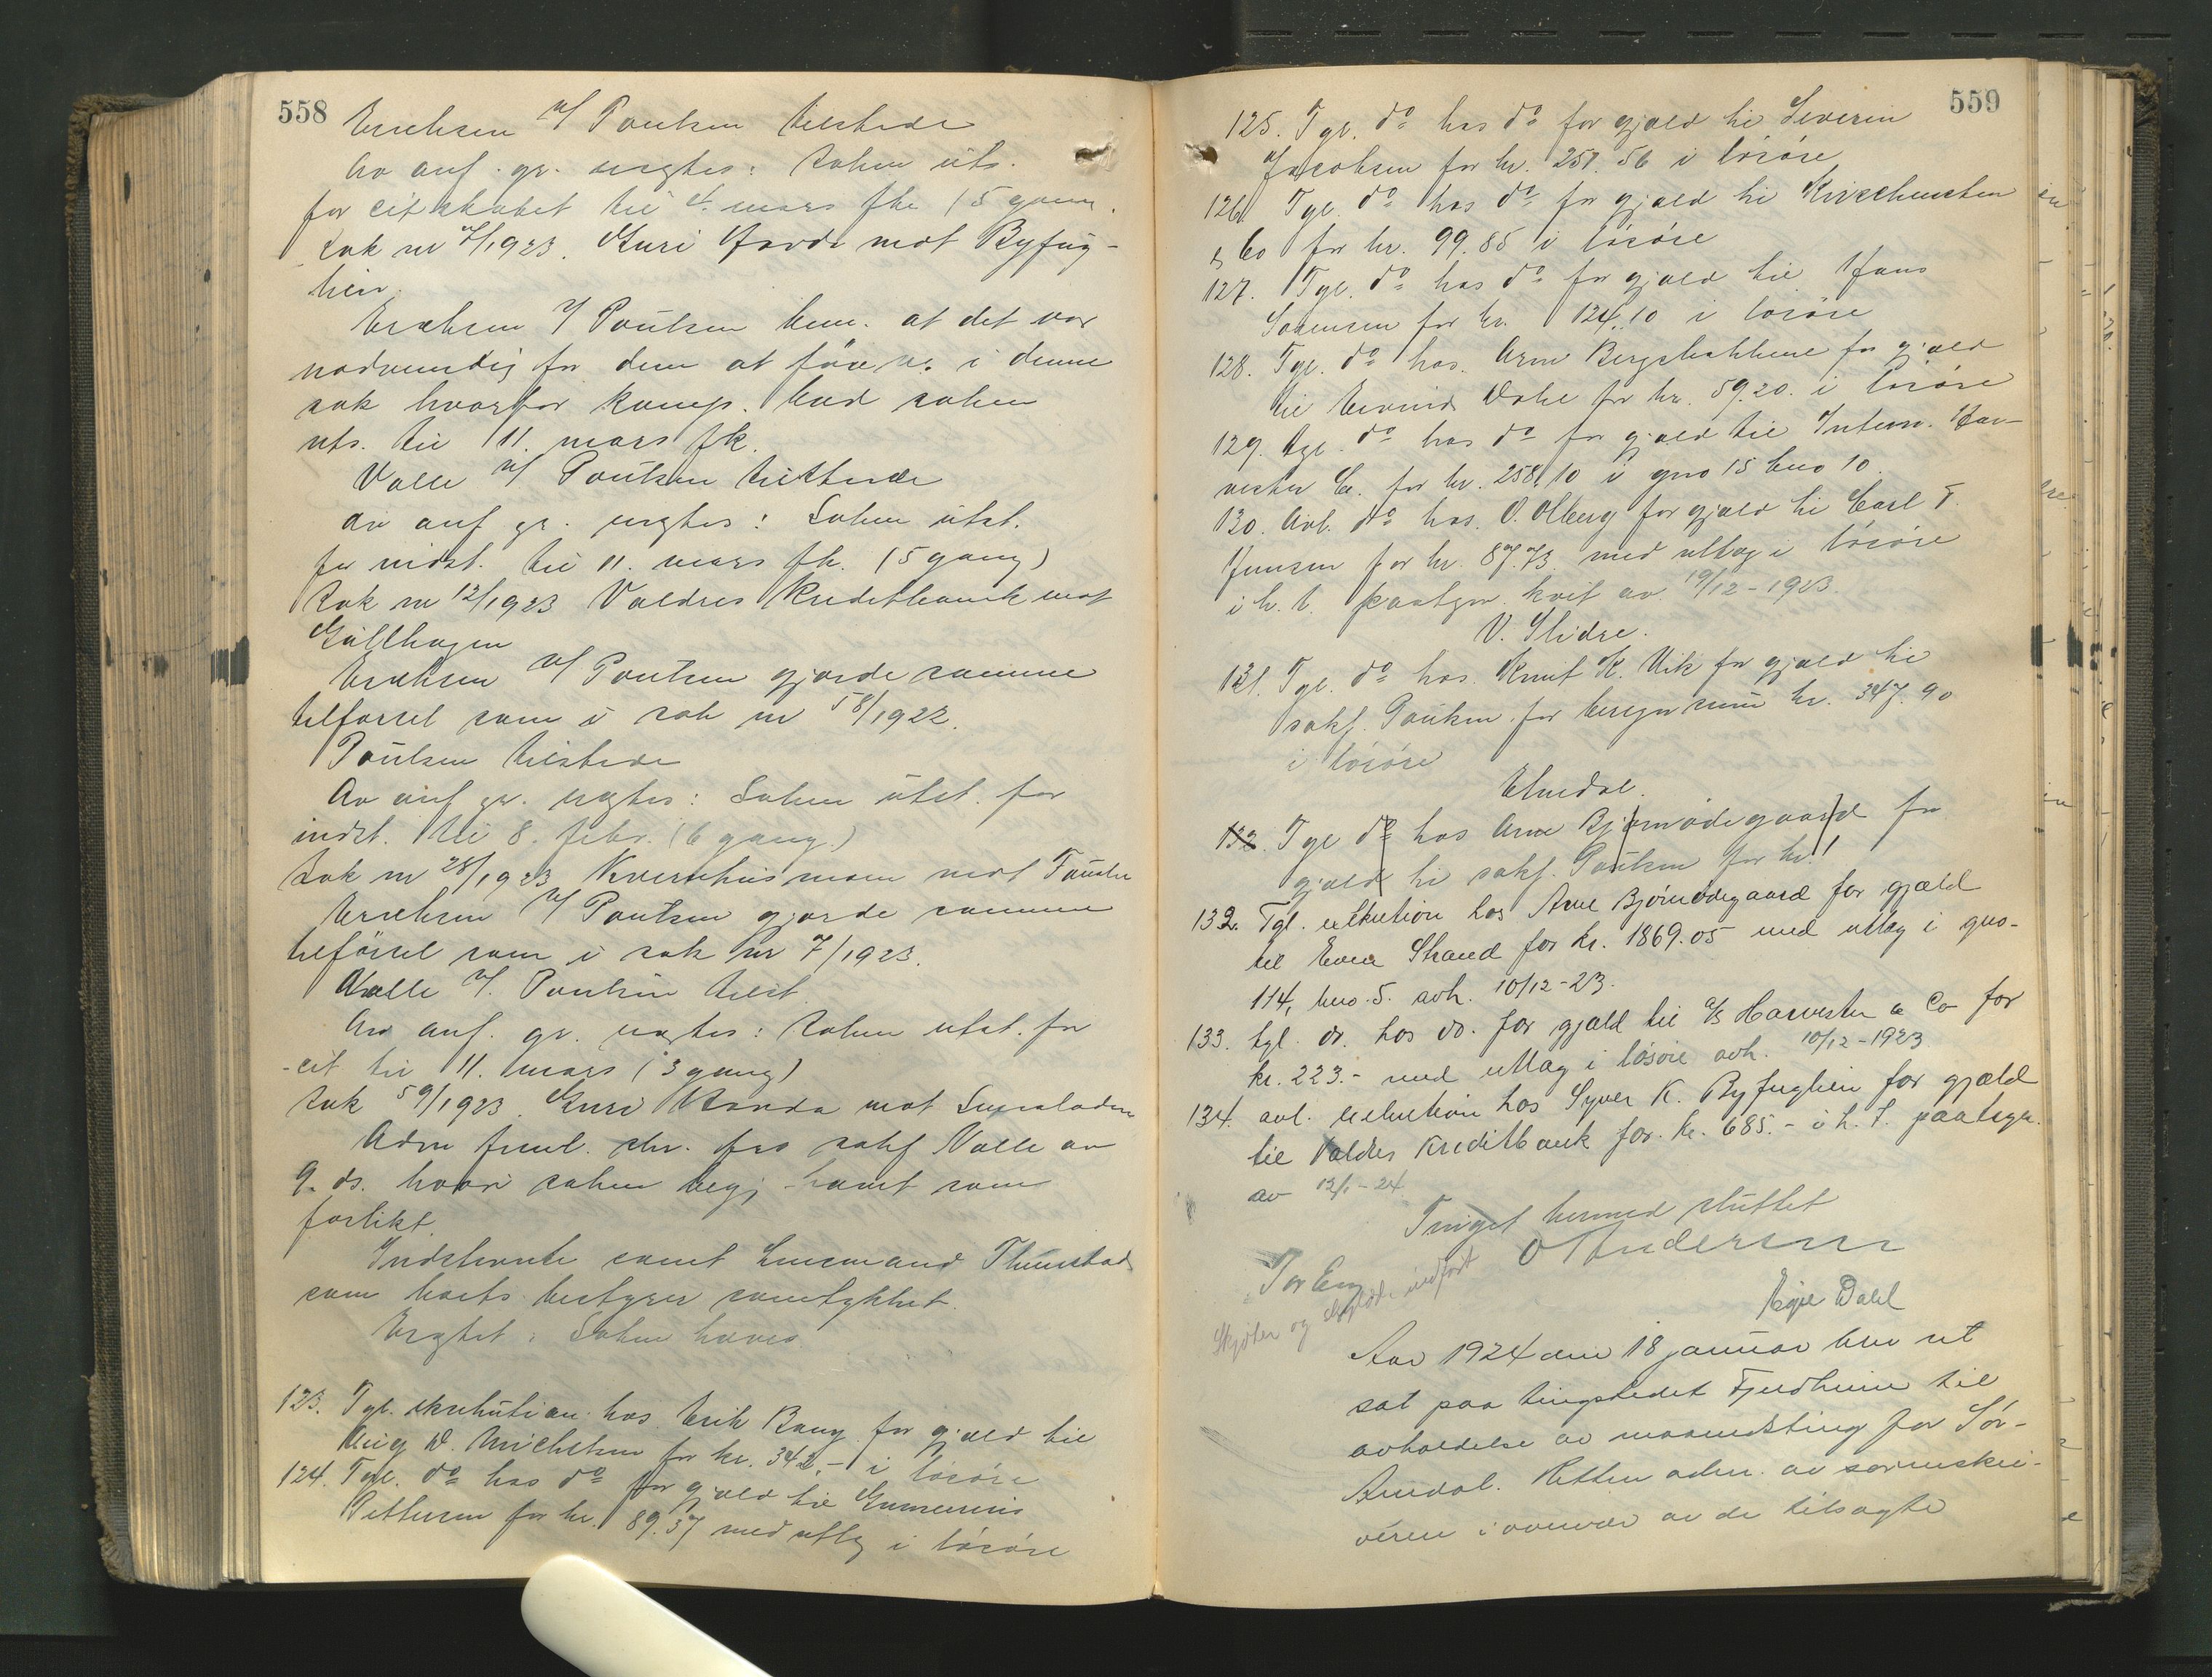 558
Erichsen v/ Poulsen tilstede
Av anf. gr. utsattes: Saken uts.
for citskabet til 4. mars fk. (5 gang.
Sak nr 7/1923. Guri mot Byfug-
lien.
Erichsen v/ Poulsen bem. at det var
nødvendig for dem at føre v. i denne
sak hvorfor komp. bad saken
uts. til 11. mars fk.
Valle v/ Poulsen tilstede
Av anf gr. : Saken utst.
for indst. til 11. mars fk. (5 gang)
Sak nr 12/1923 Valdres Kreditbank mot
Gullhagen
Erichsen v/ Poulsen gjorde samme
tilførsel som i sak nr 58/1922.
Poulsen tilstede
Av anf gr. : Saken utst. for
indst. til 8. febr. (6 gang.)
Sak nr 28/1923 Kvernhusmoen mot
Erichsen v/ Poulsen gjorde samme
tilførsel som i sak nr 7/1923.
Valle v/. Poulsen tilst.
Av anf. gr. : Saken utst. for
cit til 11. mars (3 gang)
Sak 59/1923. Guri mot
Adm freml. skr. fra sakf Valle av
9. ds. hvori saken begj. hævet som
forlikt.
Indstevnte samt Lensmand Thunstad
som boets bestyrer samtykket.
: Saken hæves
123. Tgl. ekskution hos Erik Bang for gjæld til
W. Michelsen for kr. 342.- i løsøre
124. Tgl. do hos do for gjæld til Gunerius
Pettersen for kr. 89.37 med utlæg i løsøre
559
125. Tgl. do hos do for gjæld til Severin
Jacobsen for kr. 251.56 i løsøre
126. Tgl. do hos do for gjæld til
& Co for kr. 99.85 i løsøre
127. Tgl. do hos do for gjæld til Hans
Sørensen for kr. 124.10 i løsøre
128. Tgl. do hos. Arne for gjæld
til Eivind Dahl for kr. 59.20. i løsøre
129. Tgl. do hos do for gjæld til Intern. Har-
vester Co. for kr. 258.10 i gno 15 bno 10.
130. Avl. do hos. O. Olberg for gjæld til Carl F.
Jensen for kr. 87.73 med utlæg i løsøre
i h. t. paategn. kvit av. 19/12-1923.
V. Slidre.
131. Tgl. do hos. Knut K. Vik for gjæld til
sakf. Poulsen for beregn sum kr. 347.90
i løsøre
Etnedal.
132. Tgl do hos Arne Bjørnødegaard for
gjæld til sakf. Poulsen for kr.
132. Tgl. exekution hos Arne Bjørnødegaard for gjæld
til Even Strand for kr. 1869.05 med utlæg i gno-
114, bno. 5. avh. 10/12-23.
133. tgl. do. hos do. for gjæld til A/S Harvester & Co for
kr. 223.- med utlæg i løsøre avh. 10/12-1923
134. avl. exekution hos Syver K. Byfuglien for gjæld
til Valdres Kreditbank for. kr. 685.- i h. t. paategn.
av 12/1-24.
Tinget hermed sluttet
O Andersen
Tor Eng
Skjøter og indført
Egil Dahl
Aar 1924 den 18 januar blev ret
sat paa tingstedet Fjeldheim til
avholdelse av maanedsting for Sør-
Aurdal. Retten adm. av sorenskri-
veren i overvær av de tilsagte